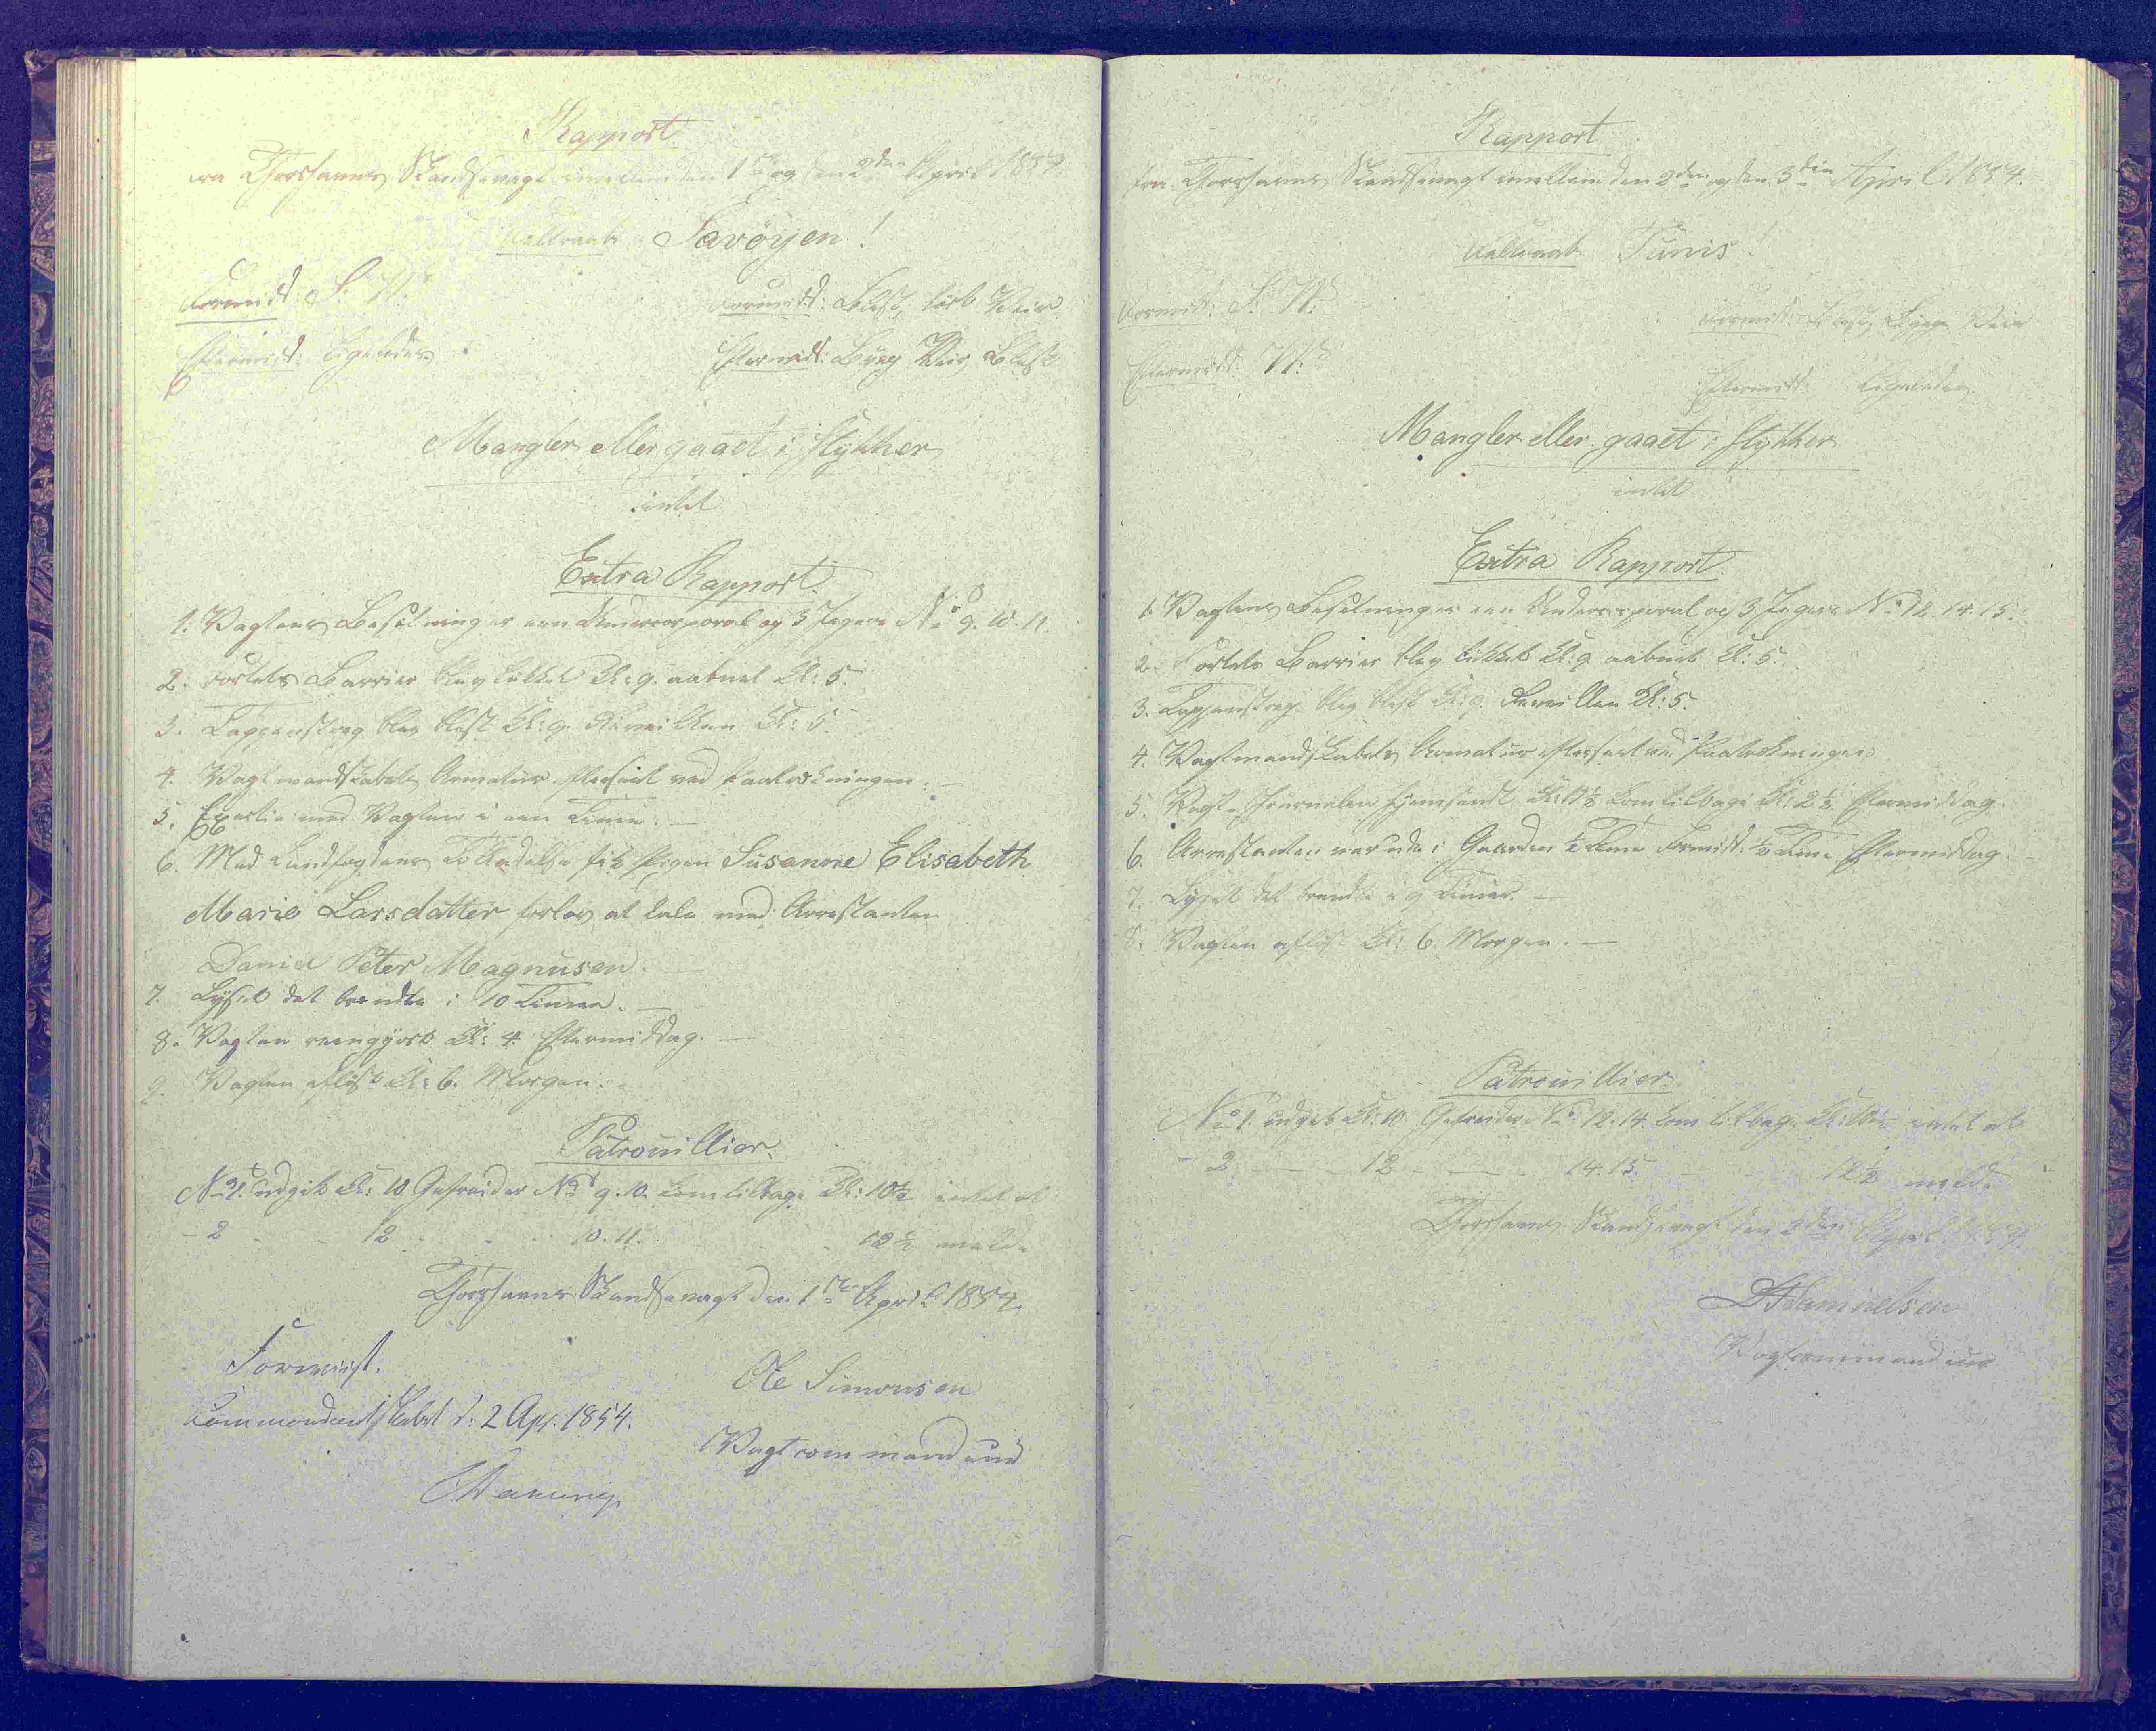 Rapport
fra Thorshavns Skandsevagt imellem den 1ste og den 2den April 1854.
Feltraab Savöyen!
Formidd: S. V.
Formidd: Blæst, tørt Veir
Eftermidd: Ligeledes
Eftermidd: Bÿeg Veir, Blæst
Mangler eller gaaet i stykker
intet
Extra Rapport.
1. Vagtens Besætning er een Undercorporal og 3 Jægere No 9. 10. 11.
2. Portets Barrier blev lukket Kl: 9. aabnet Kl: 5.
3. Tappenstreg blev blæst Kl: 9. Reveillen Kl: 5.
4. Vagtmandskabets Armatur efterseet ved Paatrækningen. –
5. Exercise med Vagten i een Time. –
6. Med Landfogdens Tilladelse fik Pigen Susanne Elisabeth
Marie Larsdatter forlov at tale med Arrestanten
Daniel Peter Magnusen. –
7. Lyset det brendte i 10 Timer. –
8. Vagten reengjort Kl: 4 Eftermiddag. –
9. Vagten afløst Kl: 6. Morgen. –
Patrouillier.
No 1. udgik Kl: 10 Gefreider No 9. 10. kom tilbage Kl: 10½ intet at
– 2 – – 12 – – 10. 11. – – 12½ melde
Thorshavns Skandsevagt den 1ste April 1854.
Foreviist.
Ole Simonsen
Commandantskabet d: 2 Apr. 1854.
Vagtcommandeur
Rapport
fra Thorshavns Skandsevagt imellem den 2den og den 3din April 1854.
Feltraab Tunis!
Formidd: S. V.
Formidd: Blæst, Bÿeg Veir
Eftermidd: V.
Eftermidd: Ligeledes
Mangler eller gaaet i stykker
intet
Extra Rapport
1. Vagtens Besetning er een Undercorporal og 3 Jegere No 12. 14. 15.
2. Portets Barrier blev lukket Kl: 9 aabnet Kl: 5.
3. Tappenstreg blev blest Kl: 9. Reveillen Kl: 5.
4. Vagtmandskabets Armatur efterseet ved Paatrekningen
5. Vagt-Journalen hjemsendt Kl: 11½ kom tilbage Kl: 2½ Eftermiddag.
6. Arrestanten var ude i Gaarden ½ Time Formidd: ½ Time Eftermiddag.
7. Lyset det brendte i 9 Timer. –
8. Vagten afløst Kl: 6. Morgen. –
Patrouillier.
No 1. udgik Kl: 10 Gefreider No 12. 14. kom tilbage Kl: 10½ intet at
– 2 – – 12 – – 14. 15. – – 12½ melde
Thorshavns Skandsevagt den 2den April 1854.
Samuelsen
Vagtcommandeur